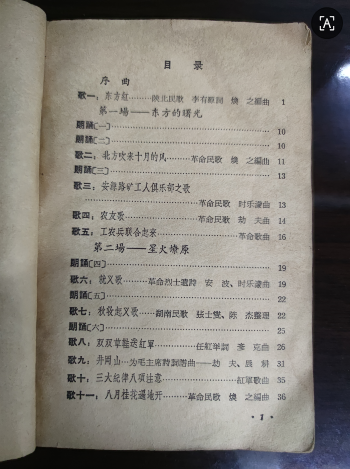 目录
序曲
歌一：东方紅……陝北民歌 李有源詞 煥之編曲 1
第一場——东方的曙光
朗誦〔一〕……10
朗誦〔二〕……10
歌二：北方吹来十月的风……革命民歌 煥之編曲 11
朗誦〔三〕……13
歌三：安源路矿工人俱乐部之歌
……革命民歌 时乐濛曲 13
歌四：农友歌……革命民歌 劫夫曲 14
歌五：工农兵联合起来……革命歌曲 16
第二場——星火燎原
朗誦〔四〕……19
歌六：就义歌……革命烈士遺詩 安波、时乐濛曲 19
朗誦〔五〕……22
歌七：秋收起义歌……湖南民歌 張士燮、陈 22
朗誦〔六〕……25
歌八：双双草鞋送紅軍……任紅举詞 麦克曲 26
歌九：井岡山……为毛主席詩詞譜曲——劫夫、晨耕 31
歌十：三大紀律八項注意……紅軍歌曲 35
歌十一：八月桂花遍地开……革命民歌 煥之編曲 36
· 1 ·